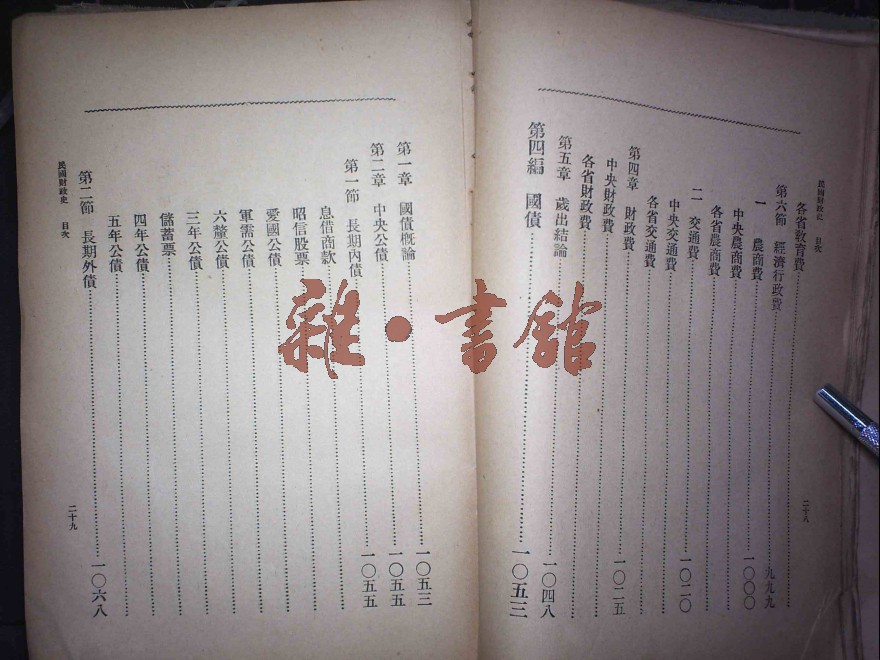 民國財政史 目次
各省教育費
第六節 經濟行政費 九九九
一 農商費 一〇〇〇
中央農商費
各省農商費
二 交通費 一〇二〇
中央交通費
各省交通費
第四章 財政費 一〇二五
中央財政費
各省財政費
第五章 歲出結論 一〇四八
第四編 國債 一〇五三
二十八
第一章 國債概論 一〇五三
第二章 中央公債 一〇五五
第一節 長期內債 一〇五五
息借商款
昭信股票
愛國公債
軍需公債
六釐公債
三年公債
儲蓄票
四年公債
五年公債
第二節 長期外債 一〇六八
民國財政史 目次
二十九
雜·書館